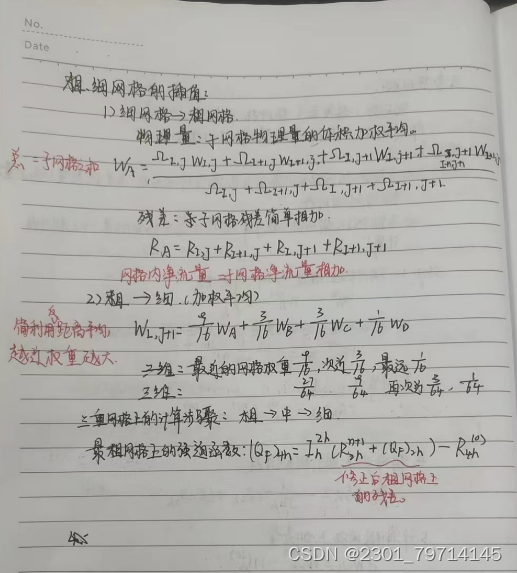 No.
Date
粗、细网格的插值:
1) 细网格→粗网格
物理量:子网格物理量的体积加权平均。
总=子网格之和
W_A = (Ω_{I,J} W_{I,J} + Ω_{I+1,J} W_{I+1,J} + Ω_{I,J+1} W_{I,J+1} + Ω_{I+1,J+1} W_{I+1,J+1}) / (Ω_{I,J} + Ω_{I+1,J} + Ω_{I,J+1} + Ω_{I+1,J+1})
残差:子网格残差简单相加.
R_A = R_{I,J} + R_{I+1,J} + R_{I,J+1} + R_{I+1,J+1}
网格内净流量=子网格净流量相加.
2) 粗→细.(加权平均)
W_{I,J+1} = 9/16 W_A + 3/16 W_B + 3/16 W_C + 1/16 W_D
利用距离平均,
越近权重越大.
二维:最近的网格权重 9/16, 次近 3/16, 最远 1/16
三维: 27/64 9/64 再次近 3/64, 1/64
三重网格上的计算步骤: 粗→中→细
最粗网格上的强迫函数: (Q_F)_{4h} = I_h^{2h} (R_{2h}^{n+1} + (Q_F)_{2h}) − R_{4h}^{(0)}
修正后粗网格上
的残差。
CSDN @2301_79714145